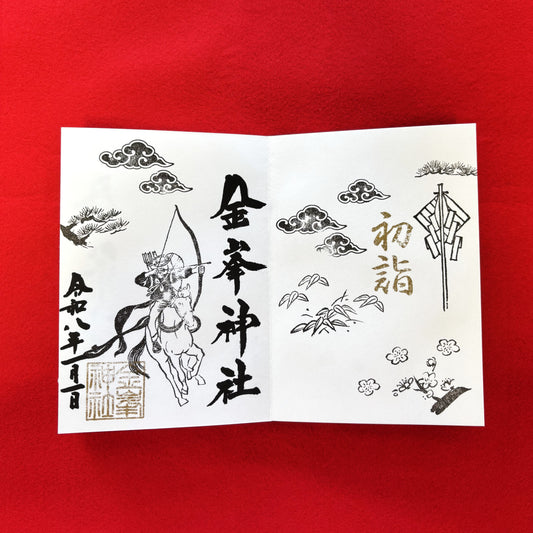 初詣
金峯神社
令和八年一月一日
金峯
神社